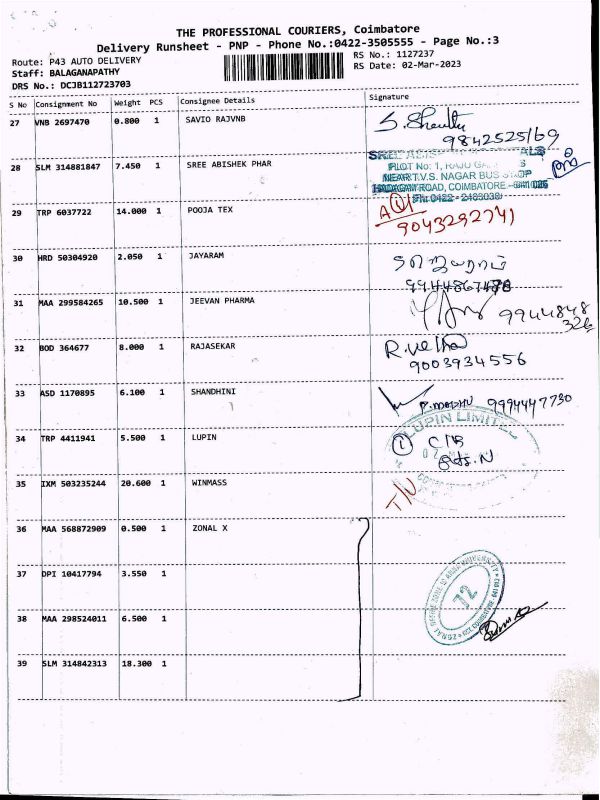 THE PROFESSIONAL COURIERS, Coimbatore
Delivery Runsheet - PNP - Phone No.:0422-3505555 - Page No.:3
Route: P43 AUTO DELIVERY
RS No.: 1127237
Staff: BALAGANAPATHY
RS Date: 02-Mar-2023
DRS No.: DCJB112723703
S No Consignment No Weight PCS Consignee Details Signature
27 VNB 2697470 0.800 1 SAVIO RAJVNB
9842525169
28 SLM 314881847 7.450 1 SREE ABISHEK PHAR
PLOT No: 1, RAJU
NEAR T.V.S. NAGAR BUS STOP
ROAD, COIMBATORE - 641 026
29 TRP 6037722 14.000 1 POOJA TEX
9043292741
30 HRD 50304920 2.050 1 JAYARAM
ஜெயராம்
9944867488
31 MAA 299584265 10.500 1 JEEVAN PHARMA
9944848
326
32 BOD 364677 8.000 1 RAJASEKAR
9003934556
33 ASD 1170895 6.100 1 SHANDHINI
P. MADHU 9994447730
34 TRP 4411941 5.500 1 LUPIN
LUPIN LIMITED
1 C/B
35 IXM 503235244 20.600 1 WINMASS
T/N
36 MAA 568872909 0.500 1 ZONAL X
37 DPI 10417794 3.550 1
72
38 MAA 298524011 6.500 1
39 SLM 314842313 18.300 1